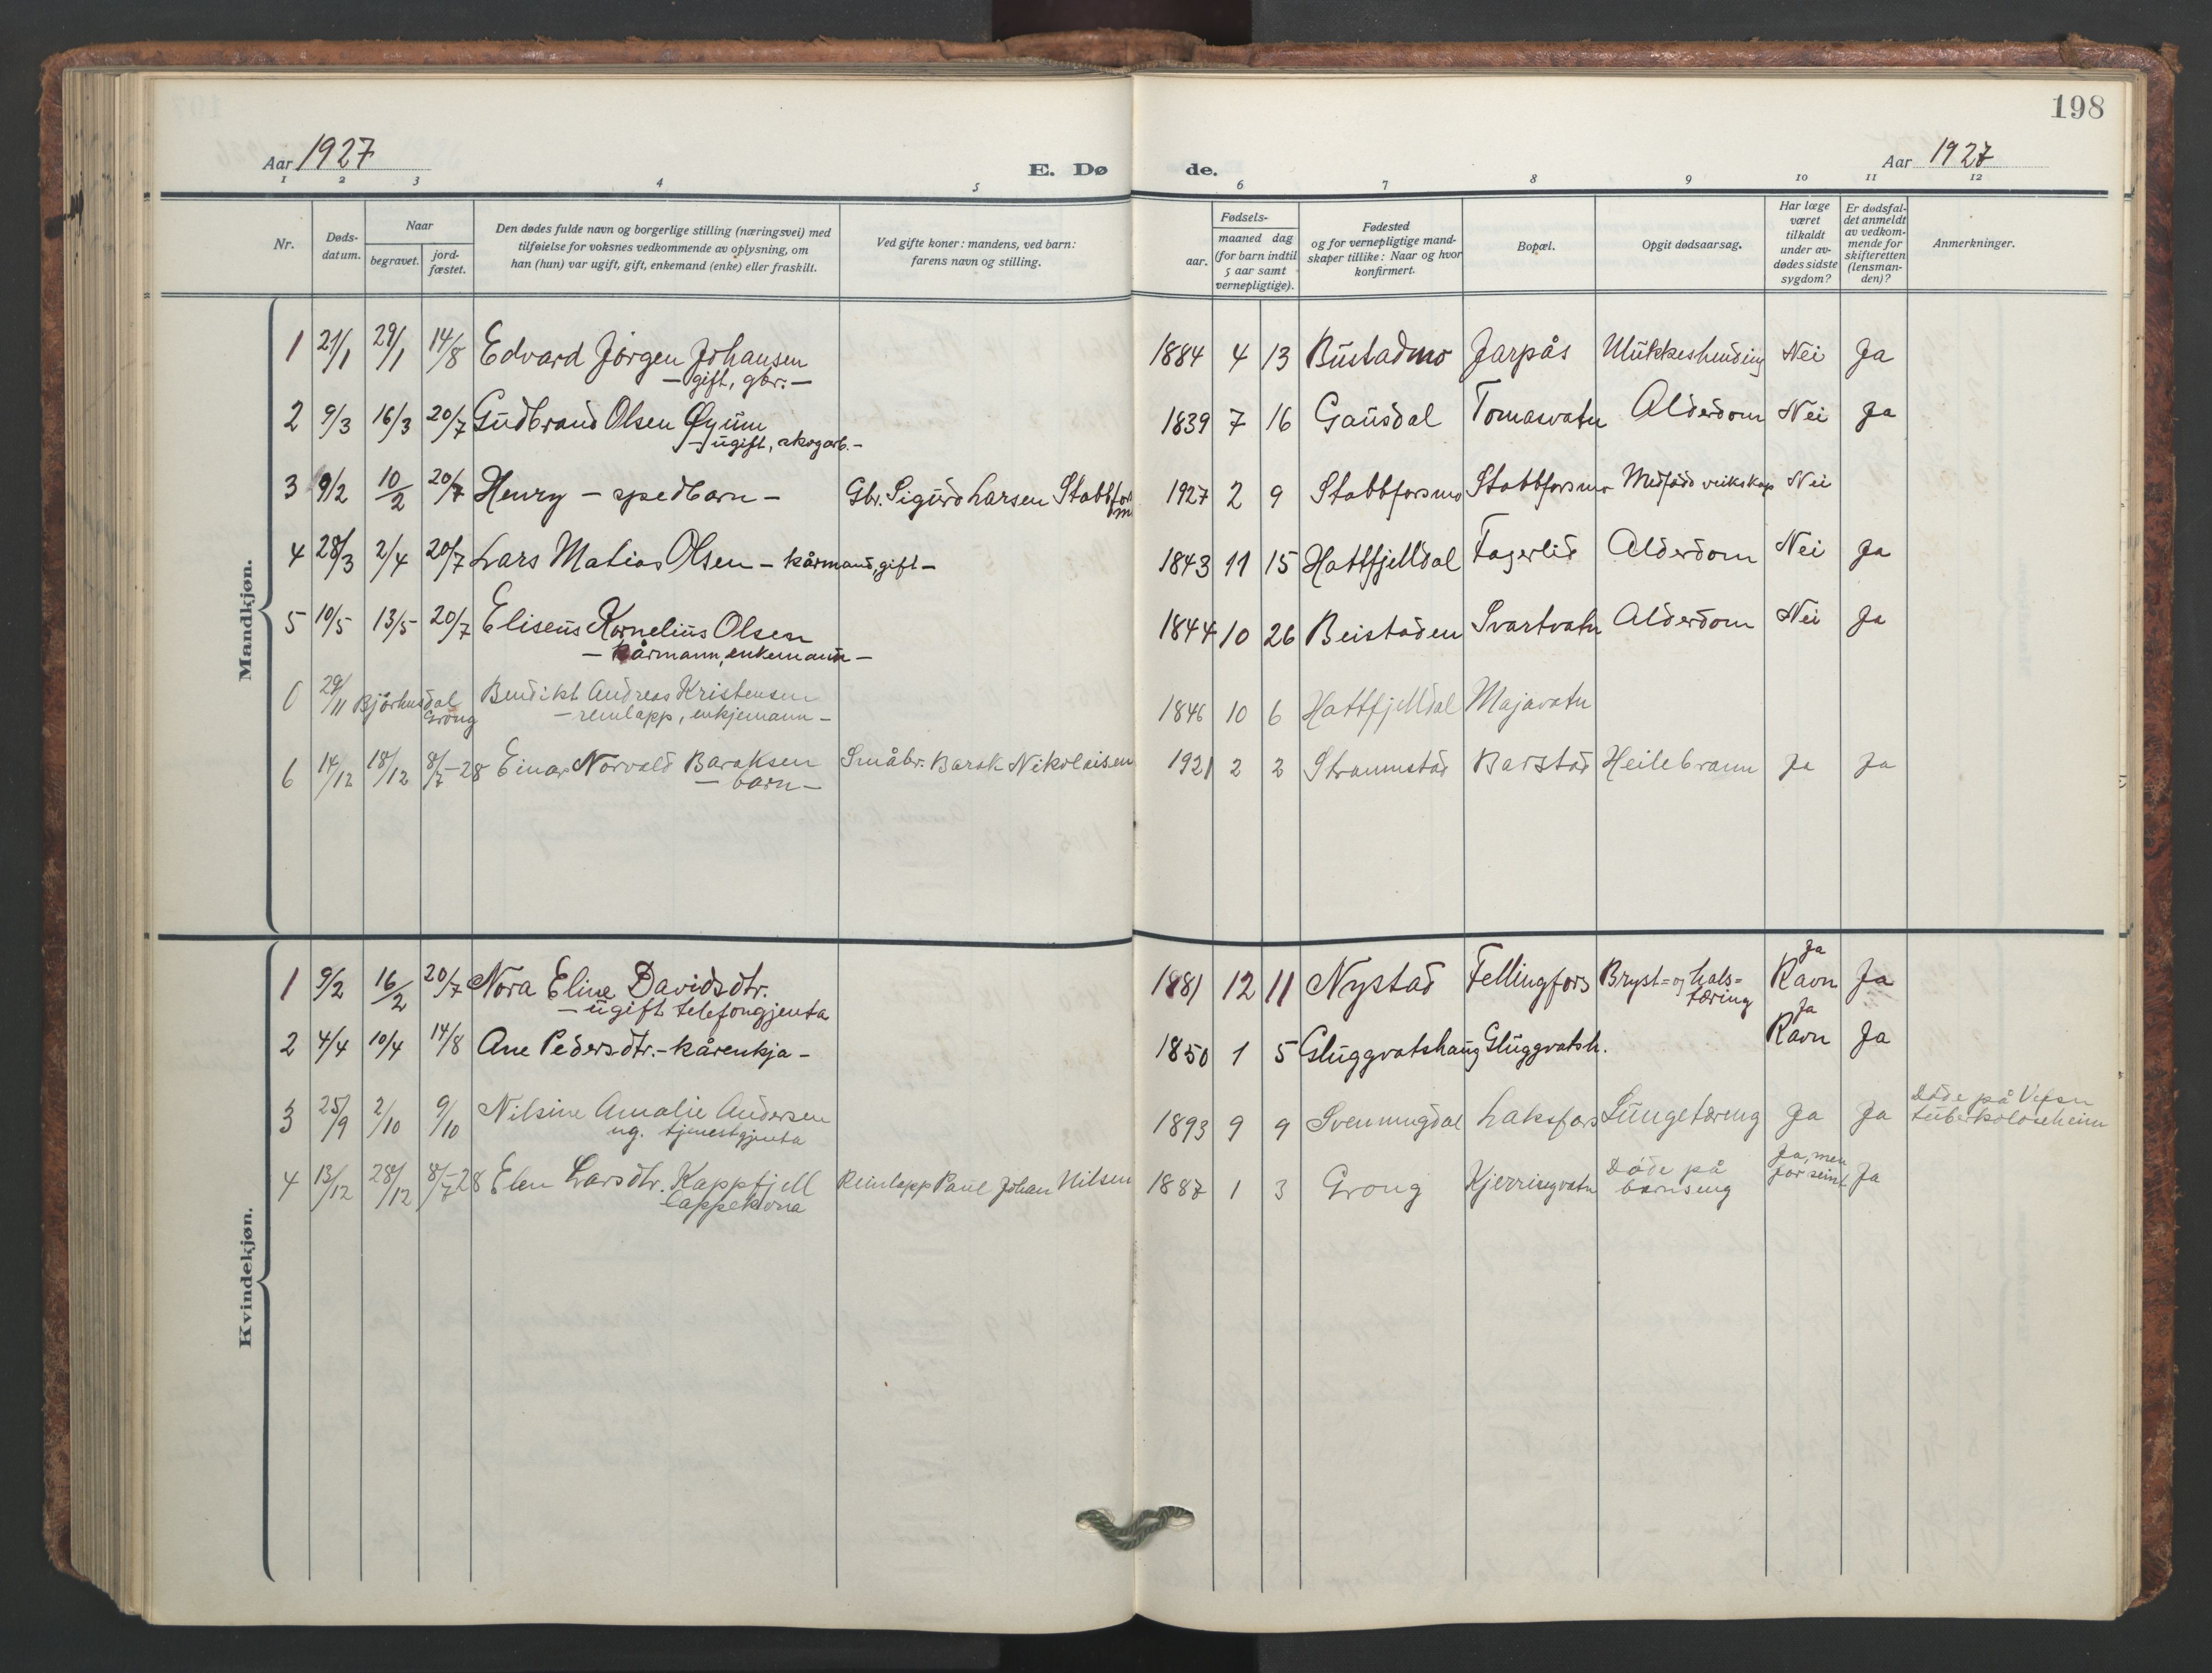 198
Aar 1927
E. Dø
de.
Aar 1927
1 2 3 4 5 6 7 8 9 10 11 12
Nr.
Døds-
datum.
Naar
begravet.
jord-
fæstet.
Den dødes fulde navn og borgerlige stilling (næringsvei) med
tilføielse for voksnes vedkommende av oplysning, om
han (hun) var ugift, gift, enkemand (enke) eller fraskilt.
Ved gifte koner: mandens, ved barn:
farens navn og stilling.
Fødsels-
aar.
maaned dag
(for barn indtil
5 aar samt
vernepligtige).
Fødested
og for vernepligtige mand-
skaper tillike: Naar og hvor
konfirmert.
Bopæl.
Opgit dødsaarsag.
Har læge
været
tilkaldt
under av-
dødes sidste
sygdom?
Er dødsfal-
det anmeldt
av vedkom-
mende for
skifteretten
(lensman-
den)?
Anmerkninger.
Mandkjøn.
1 21/1 29/1 14/8 Edvard Jørgen Johansen 1884 4 13 Bustadmo Jarpås Nei Ja
— gift, gbr. —
2 9/3 16/3 20/7 Gudbrand Olsen Øyum 1839 7 16 Gausdal Tomasvatn Alderdom Nei Ja
— ugift, skogarb. —
3 9/2 10/2 20/7 Henry — spedbarn — Gbr. Sigurd Larsen Stabbfors 1927 2 9 Stabbforsmo Stabbforsmo Medfødd veikskap Nei
mo
4 28/3 2/4 20/7 Lars Matias Olsen — kårmand, gift — 1843 11 15 Hattfjelldal Fagerlid Alderdom Nei Ja
5 10/5 13/5 20/7 Eliseus Kornelius Olsen 1844 10 26 Beistaden Svartvatn Alderdom Nei Ja
— Kårmann, enkemann —
0 29/11 Bjørhusdal Bendikt Andreas Kristensen 1846 10 6 Hattfjelldal Majavatn
Grong — reinlapp, enkjemann —
6 14/12 18/12 8/7-28 Einar Norvald Baraksen Småbr. Barak Nikolaisen 1921 2 2 Straumstad Barstad Heilebrann Ja Ja
— barn —
Kvindekjøn.
1 9/2 16/2 20/7 Nora Eline Davidsdtr. 1881 12 11 Nystad Fellingfors Bryst- og hals- Ja Ravn Ja
— ugift telefongjenta tæring
2 4/4 10/4 14/8 Ane Pedersdtr. - kårenkja - 1850 1 5 Gluggvatshaug Gluggvatsh. Ja Ravn Ja
3 25/9 2/10 9/10 Nilsine Amalie Andersen 1893 9 9 Svenningdal Laksfors Lungetæring Ja Ja Døde på Vefsn
ug. tjenestgjenta tuberkoloseheim
4 13/12 28/12 8/7-28 Elen Larsdtr. Kappfjell Reinlapp Paul Johan Nilsen 1887 1 3 Grong Kjerringvatn Døde på Ja, men Ja
lappekona barnseng for seint